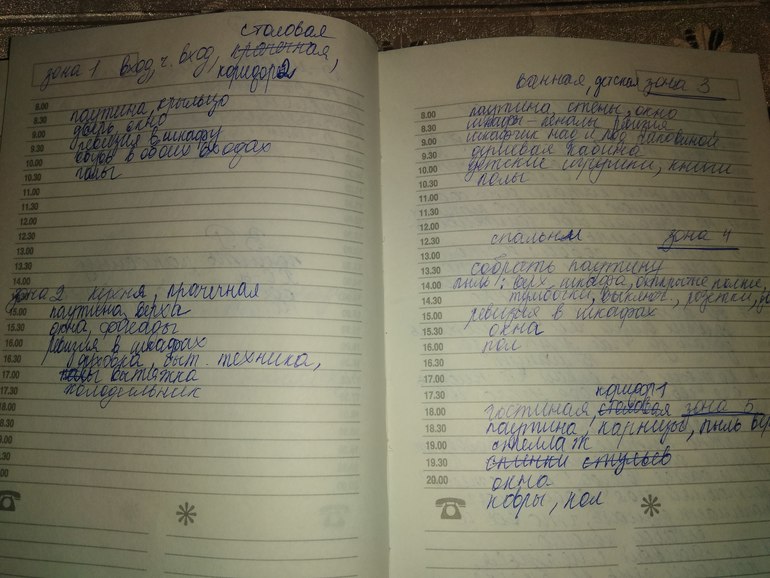 столовая
зона 1 вход, ч. вход, прачечная,
коридор 2
8.00
паутина, крыльцо
8.30
дверь окно
9.00
ревизия в шкафу
9.30
обувь в обоих входах
10.00
полы
10.30
11.00
11.30
12.00
12.30
13.00
13.30
14.00
зона 2 кухня, прачечная
15.00
паутина, верха
15.30
окна, фасады
16.00
ревизия в шкафах
16.30
духовка быт. техника,
17.00
полы вытяжка
17.30
холодильник
18.00
18.30
19.00
19.30
ванная, детская зона 3
8.00
паутина, стены, окно
8.30
шкафы-пеналы ревизия
9.00
шкафчик над и под раковиной
9.30
душевая кабина
10.00
детские игрушки, книги
10.30
полы
11.00
11.30
12.00
12.30
спальни зона 4
13.00
13.30
собрать паутину
14.00
пыль: верх шкафа, открытые полки,
14.30
тумбочки, выключ., розетки,
15.00
ревизия в шкафах
15.30
окна
16.00
пол
16.30
17.00
17.30
коридор 1
18.00
гостиная столовая зона 5
18.30
паутина, карнизы, пыль
19.00
стеллаж
19.30
спинки стульев
20.00
окна
ковры, пол